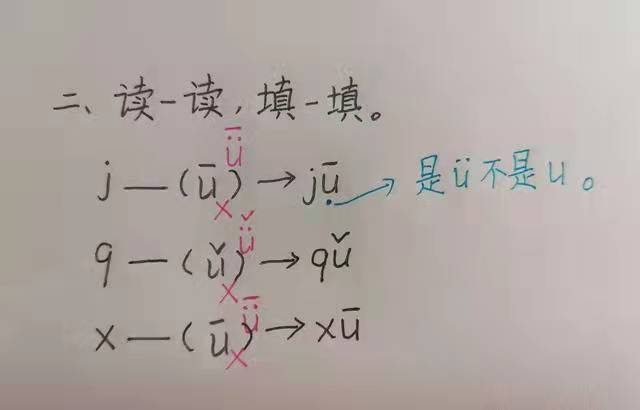 二、读一读，填一填。
ǖ
j — (ū) → jū → 是ü不是u。
x
ǚ
q — (ǔ) → qǔ
x
ǖ
x — (ū) → xū
x